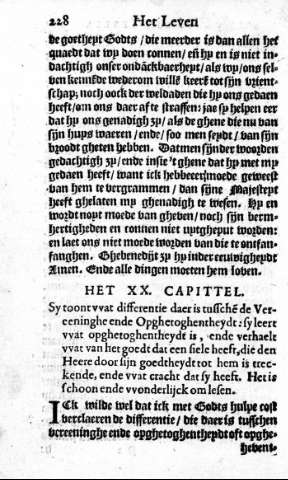 228 Het Leven
de goetheyt Godts / die meerder is dan allen het
quaedt dat wy doen connen / eñ hy en is niet in-
dachtigh onser ondãckbaerheyt / als wy / ons sel-
ven kennẽde wederom willẽ keerẽ tot sijn vrient-
schap; noch oock der weldaden die hy ons gedaen
heeft / om ons daer af te straffen: jae hy helpen eer
dat hy ons genadigh zy / als de ghene die nu van
sijn huys waeren / ende / soo men seydt / van sijn
broodt gheten hebben. Datmen sijnder woorden
gedachtigh zy / ende insie 't ghene dat hy met my
gedaen heeft / want ick hebbeer moede geweest
van hem te vergrammen / dan sijne Majesteyt
heeft ghelaten my ghenadigh te wesen. Hy en
wordt noyt moede van gheven / noch sijn berm-
hertigheden en connen niet uytgheput worden:
en laet ons niet moede worden van die te ontfan-
fanghen. Ghebenedijt zy hy inder eeuwigheydt
Amen. Ende alle dingen moeten hem loven.
HET XX. CAPITTEL.
Sy toont vvat differentie daer is tusschẽ de Ver-
eeninghe ende Opghetoghentheydt: sy leert
vvat opghetoghentheydt is, ende verhaelt
vvat van het goedt dat een siele heeft, die den
Heere door sijn goedtheydt tot hem is trec-
kende, ende vvat cracht dat sy heeft. Het is
schoon ende vvonderlijck om lesen.
ICk wilde wel dat ick met Godts hulpe cost
verclaeren de differentie / die daer is tusschen
vereeninghe ende opghetoghentheydt oft opghe-
hevent-